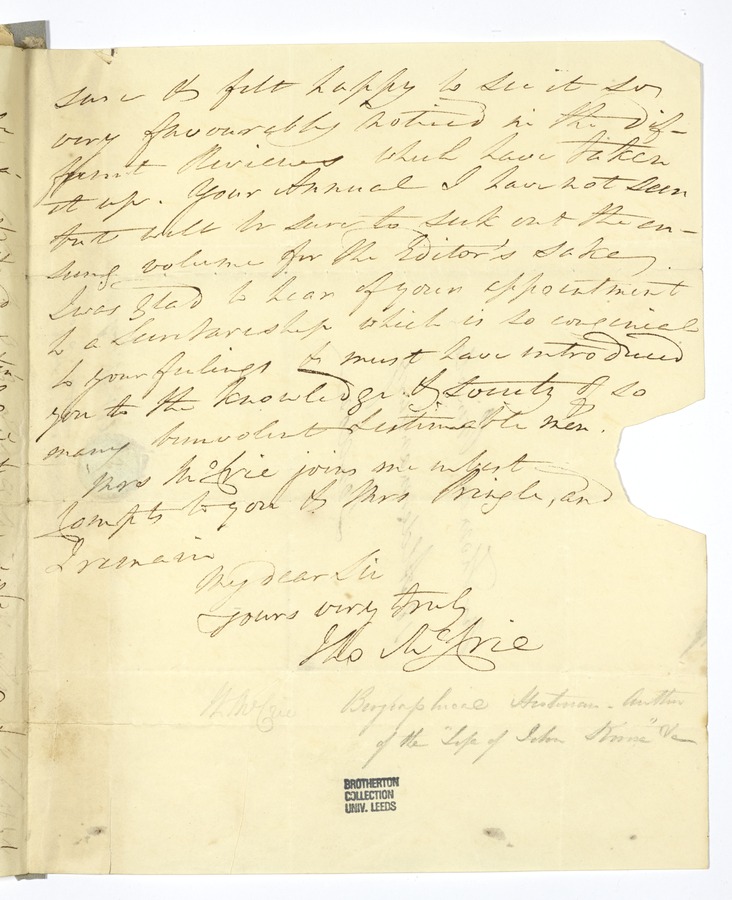 sure & felt happy to see it so
very favourably noticed in the dif-
ferent Reviews which have taken
it up. Your Annual I have not seen
but will be sure to seek out the en-
suing volume for the Editor's sake.
I was glad to hear of your appointment
to a Secretaryship which is so congenial
to your feelings & must have introduced
you to the knowledge & society of so
many benevolent & estimable men.
Mrs McCrie joins me in best
compts to you & Mrs Pringle, and
I remain
My dear Sir
yours very truly
Tho McCrie
McCrie Biographical Historian - Author
of the "Life of John Knox" &c
BROTHERTON
COLLECTION
UNIV. LEEDS